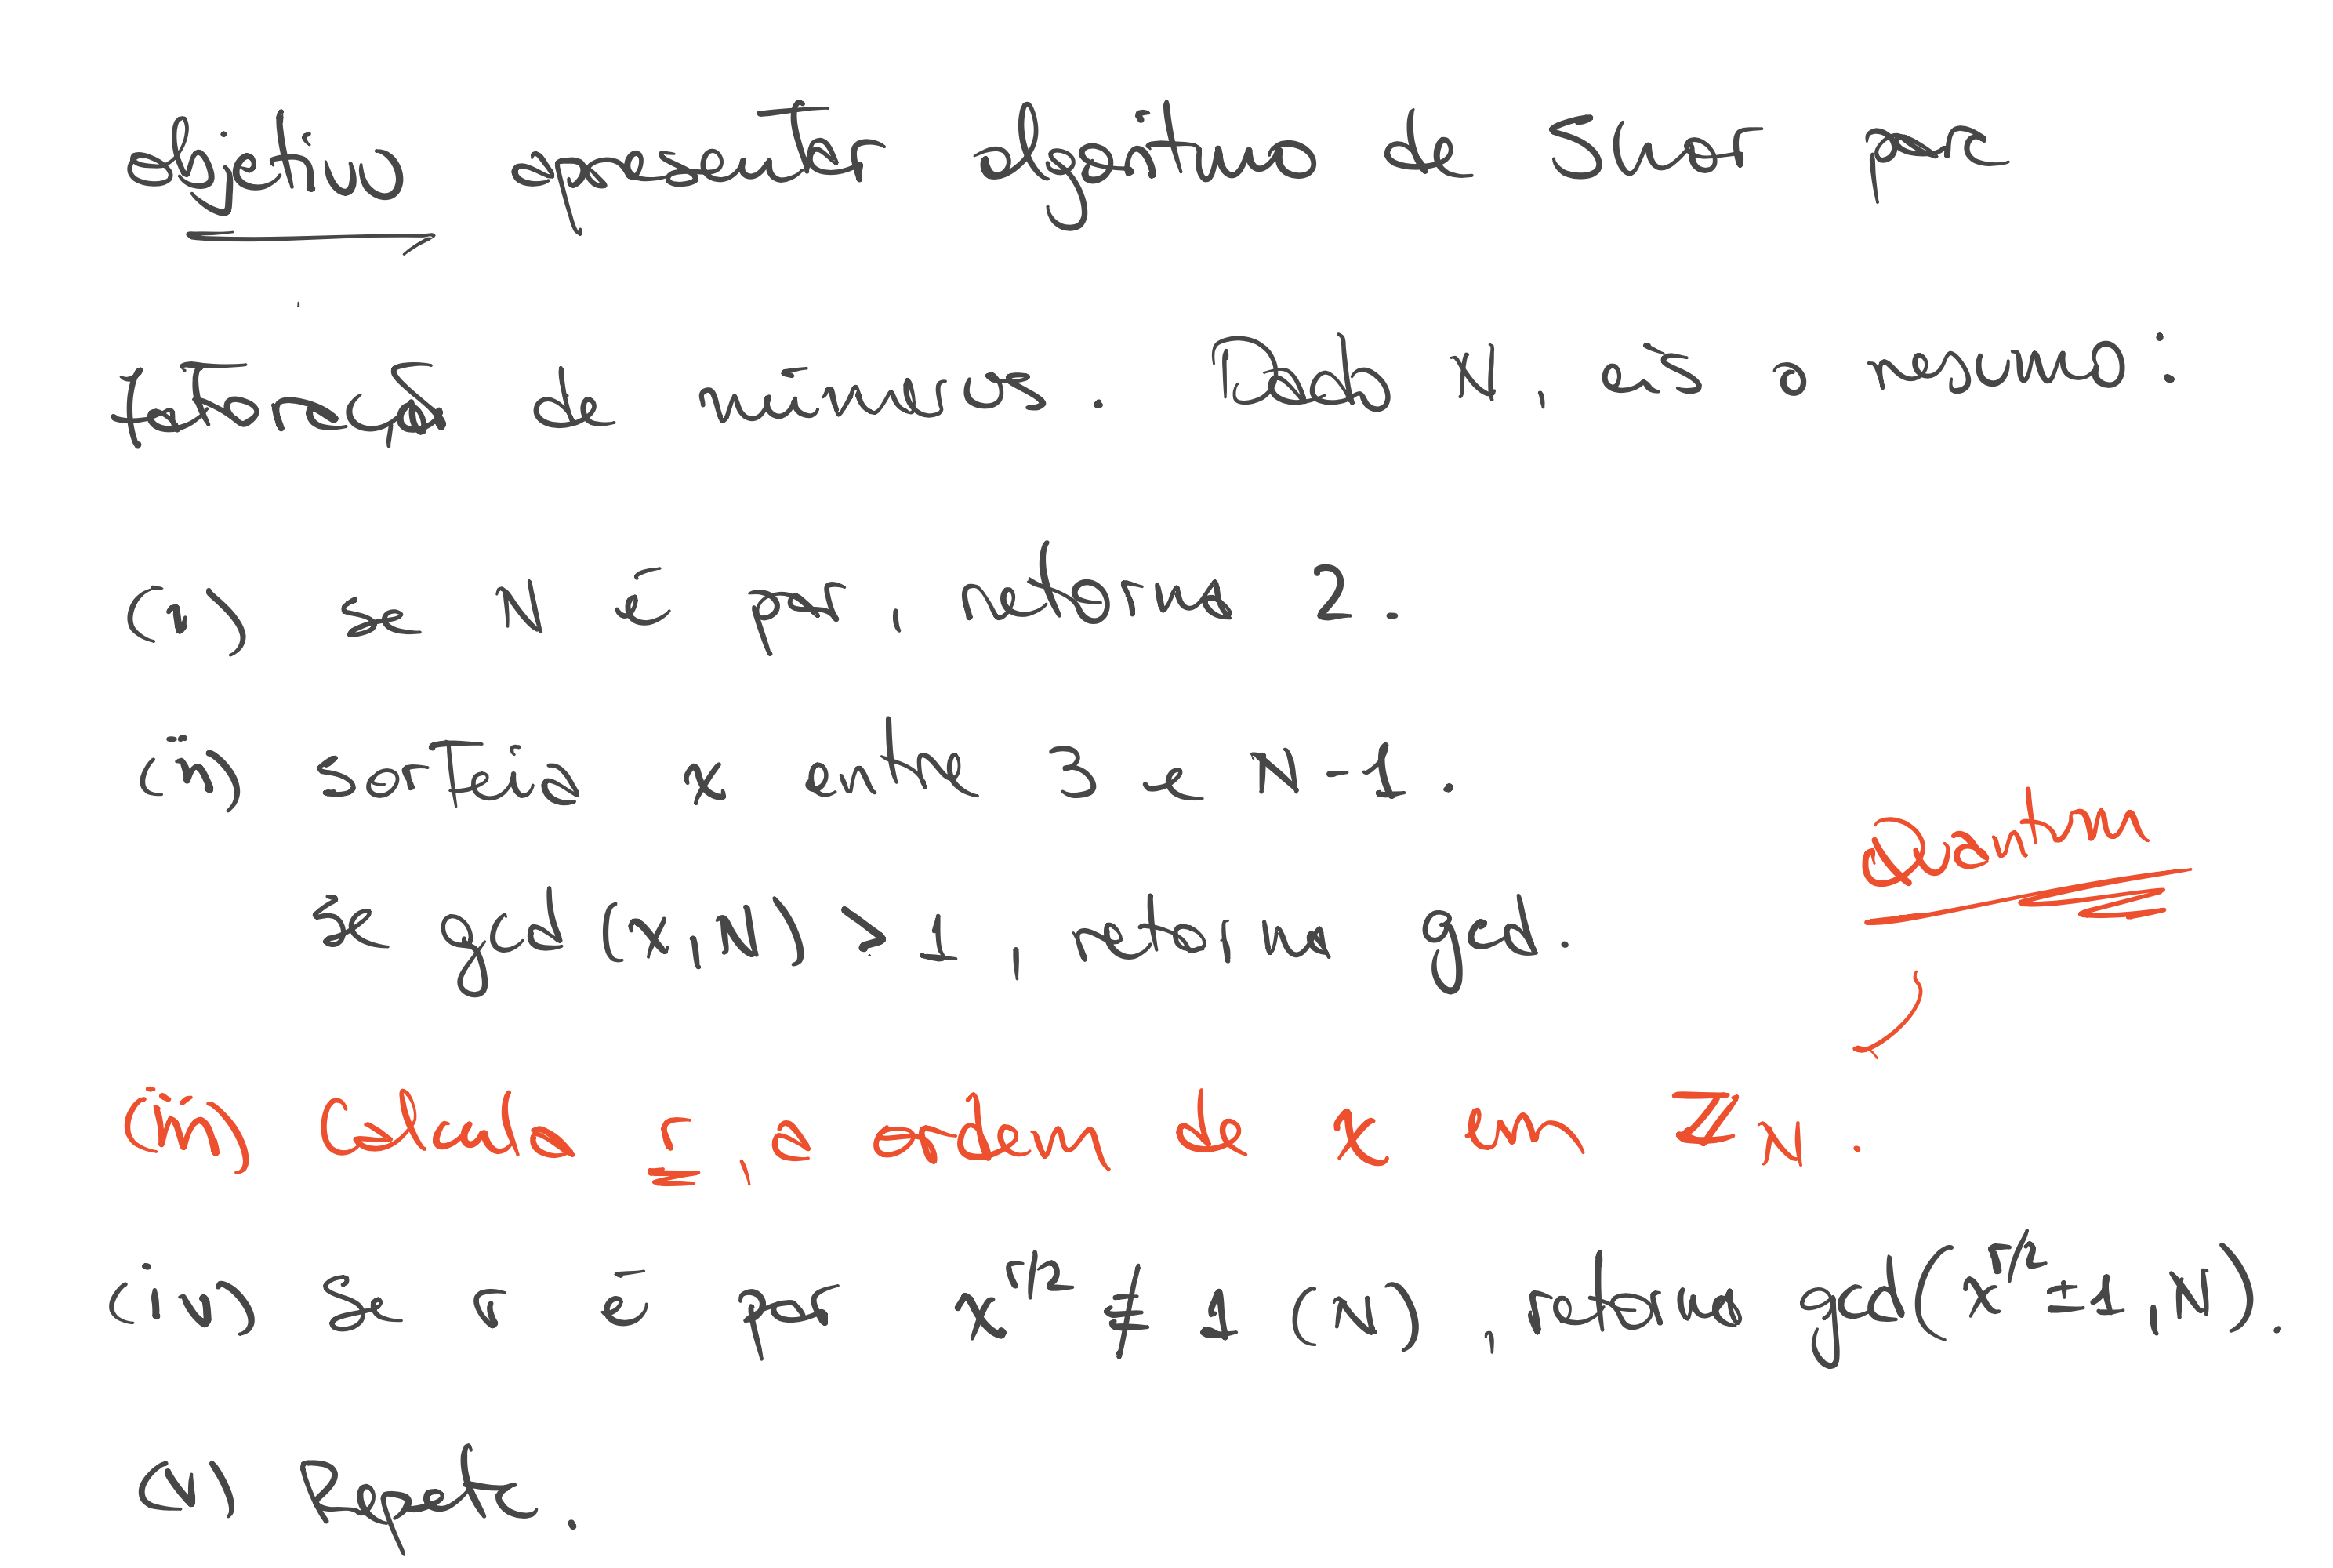 objetivo apresentar algoritmo de Shor para
fatoração de números. Dado N, eis o resumo:
(i) se N é par, retorna 2.
(ii) sorteia x entre 3 e N-1.
Se gcd(x,N) > 1, retorna gcd.
Quantum
(iii) Calcula r, a ordem de x em Z_N.
(iv) se r é par x^{r/2} ≢ 1 (N), retorna gcd(x^{r/2} ± 1, N).
(v) Repete.